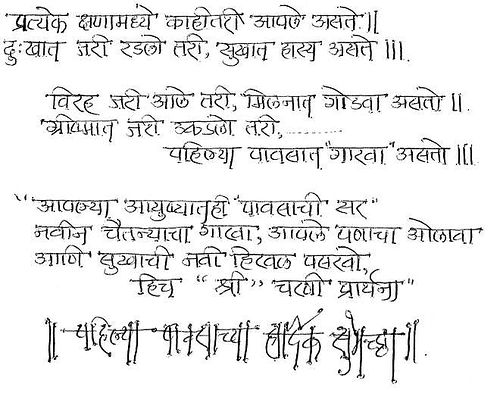 प्रत्येक क्षणामध्ये काहीतरी आपले असते ||
दुःखात जरी रडलो तरी, सुखात हास्य असते |||
विरह जरी आले तरी, मिलनात गोडवा असतो ||.
ग्रीष्मात जरी उकडलो तरी, ............
पहिल्या पावसात "गारवा" असतो |||
"आपल्या आयुष्यातही "पावसाची सर"
नवीन चैतन्याचा गारवा, आपले पणाचा ओलावा
आणि सुखाची नवी हिरवळ पसरवो,
हिच "श्री" चरणी प्रार्थना"
|| पहिल्या पावसाच्या हार्दिक शुभेच्छा ||.